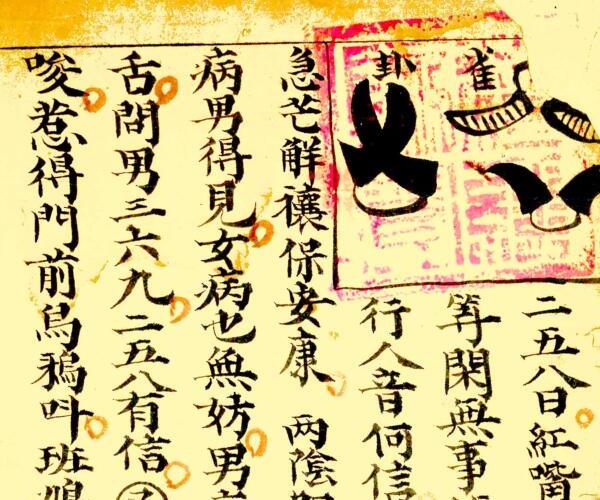 雀
卦
二五八日紅嘴
等閑無事
行人音何信
急芒解禳保安康 兩陰
病男得見女病也無妨男
舌問男三六九二五八有信
唆惹得門前烏鴉叫班鳩